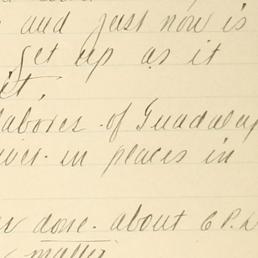 and just now is
get up as it
it.
labores of Guadalup
iver in places in
done. about C P.
matter